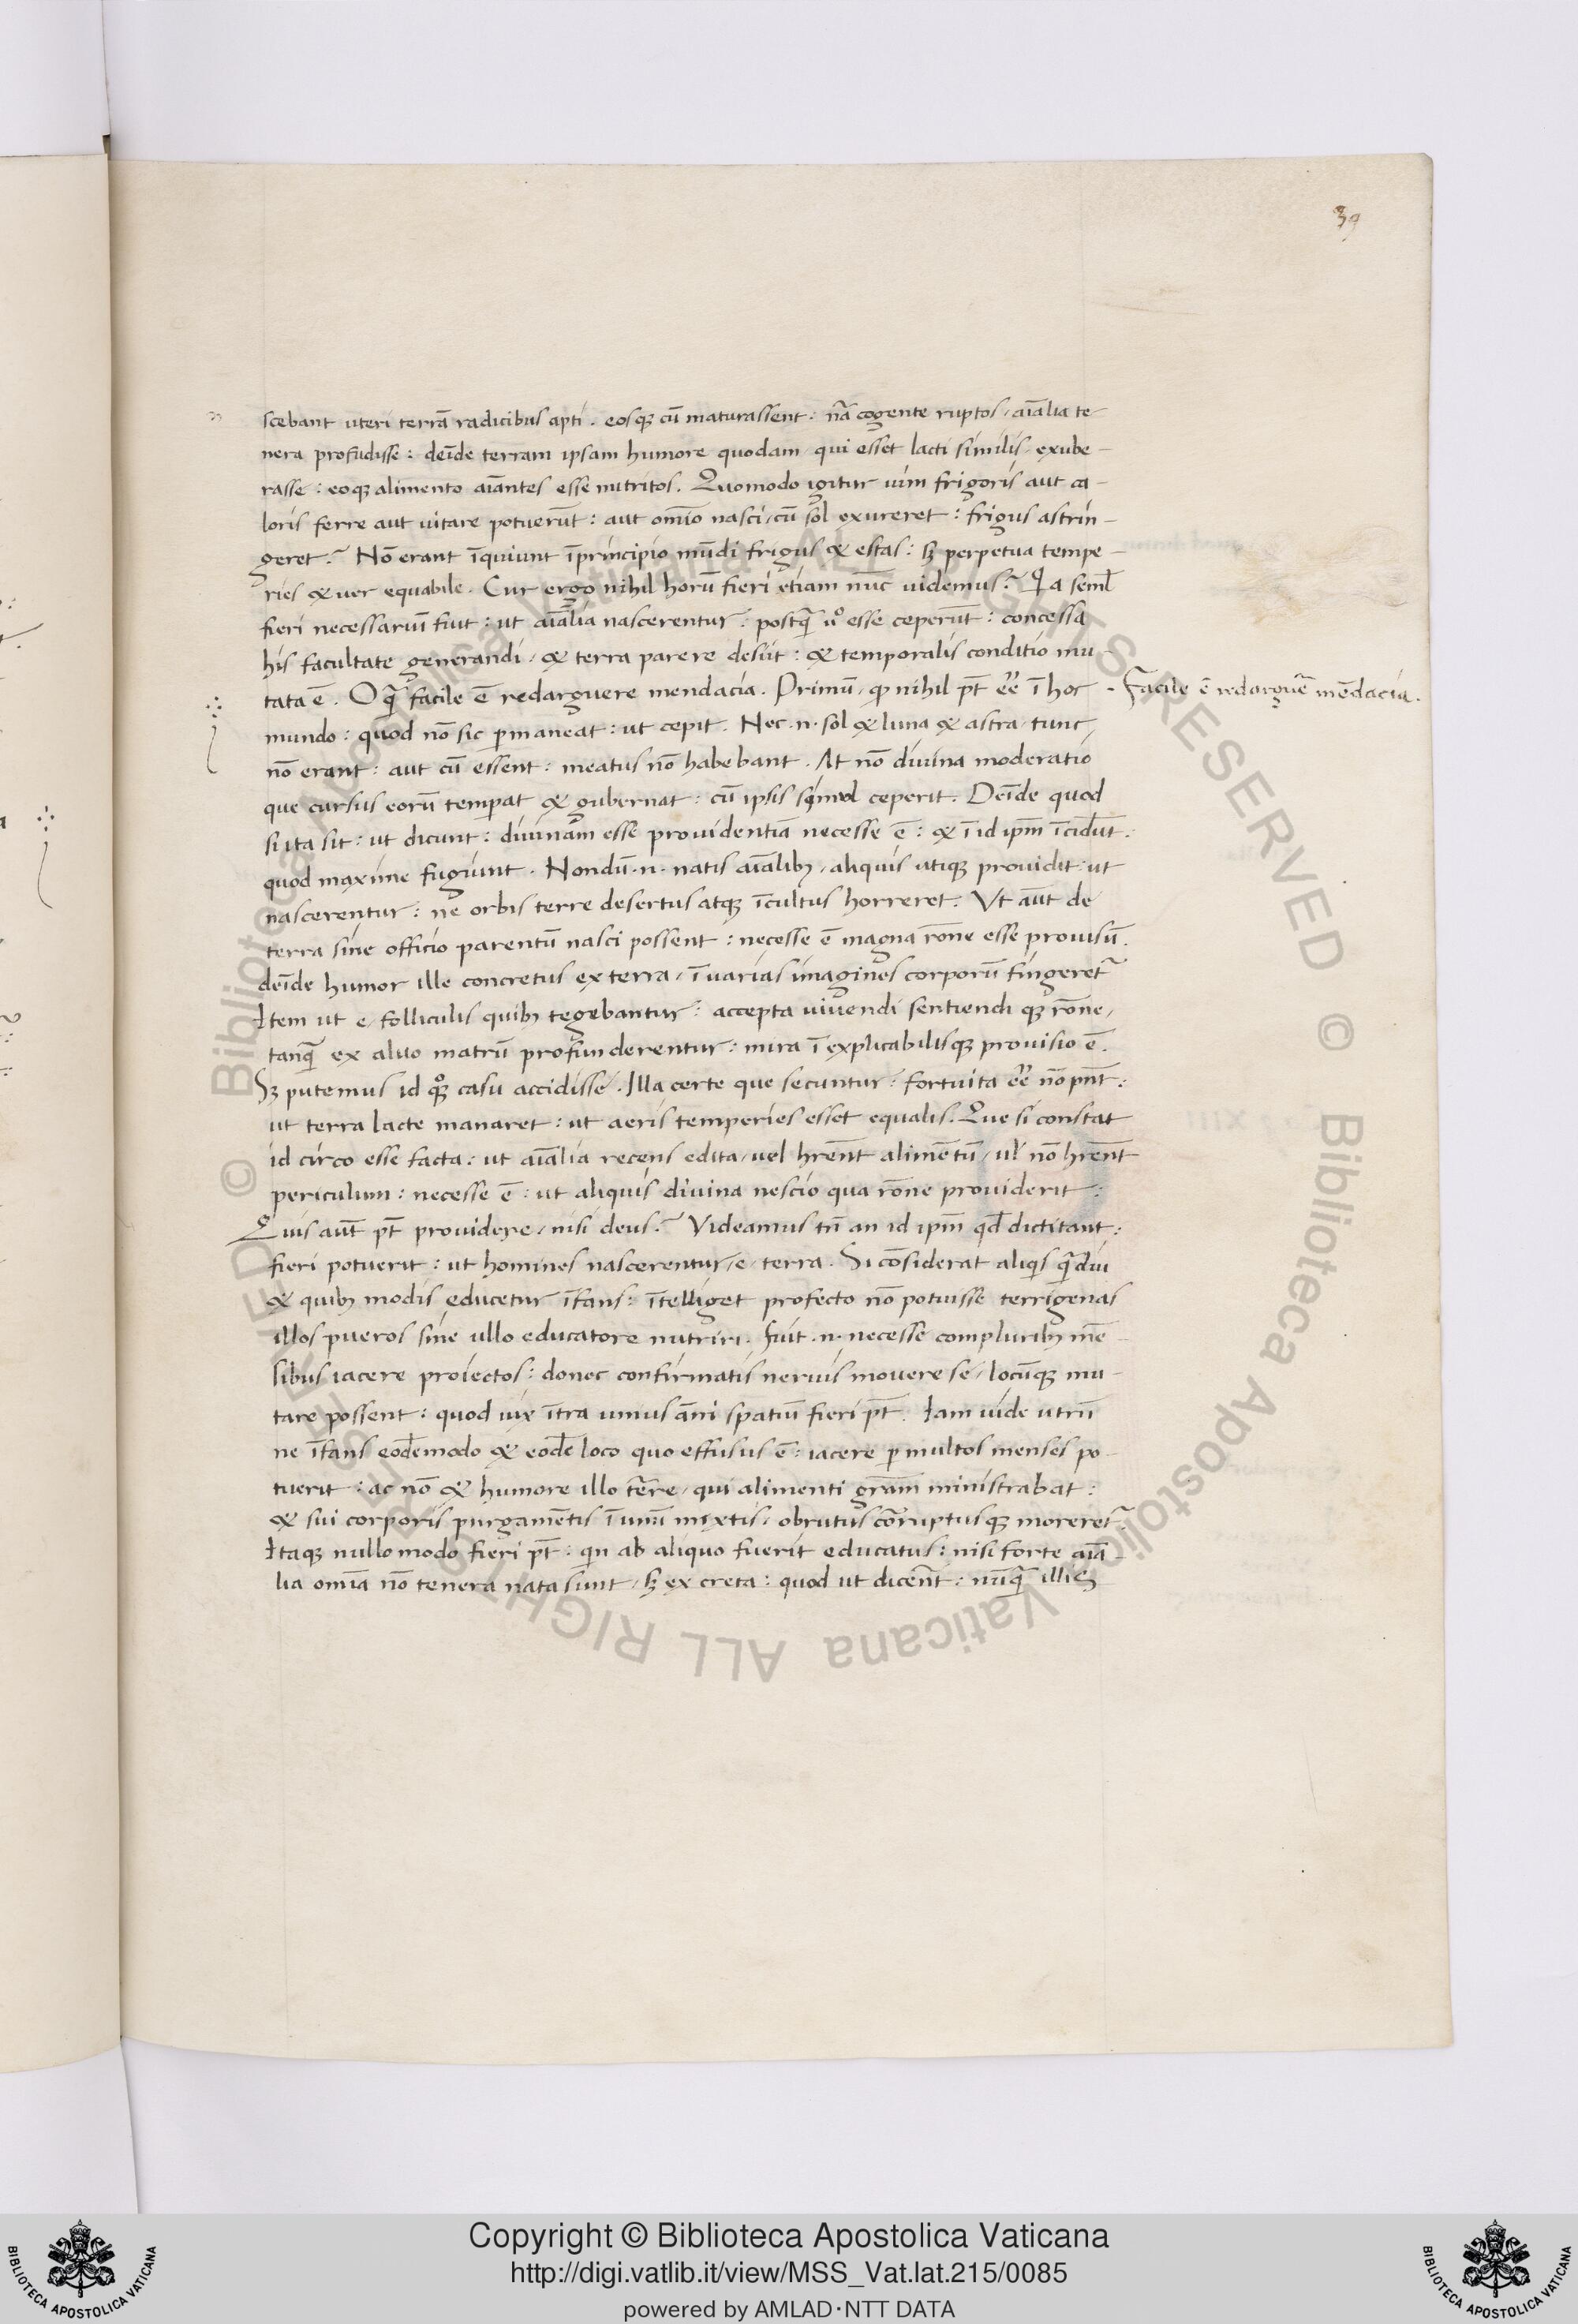 39
scebant uteri terrã radicibus apti . eosqꝫ cũ maturassent : nã cogente ruptos / aĩalia te-
nera profudisse : deĩde terram ipsam humore quodam / qui esset lacti similis / exube-
rasse : eoqꝫ alimento aĩantes esse nutritos . Quomodo igitur uim frigoris aut ca-
loris ferre aut uitare potuerũt : aut omĩo nasci / cũ sol exureret : frigus astrin-
geret ? Nõ erant ĩquiunt ĩprincipio mũdi frigus & estas : sꝫ perpetua tempe-
ries & uer equabile . Cur ergo nihil horũ fieri etiam nũc uidemus ? Qa seml̃
fieri necessariũ fuit : ut aĩalia nascerentur : postq̃ uº esse ceperũt : concessa
his facultate generandi / & terra parere desiit : & temporalis conditio mu-
tata ẽ . O q̃ facile ẽ redarguere mendacia . Primũ / ꝙ nihil pt̃ eẽ ĩ hoc
- Facile ẽ redarguẽ mẽdacia .
mundo : quod nõ sic ꝑmaneat : ut cepit . Nec .n. sol & luna & astra / tunc /
nõ erant : aut cũ essent : meatus nõ habebant . At nõ diuina moderatio
que cursus eorũ temꝑat & gubernat : cũ ipsis simul ceperit . Deĩde quod
si ita sit : ut dicunt : diuinam esse prouidentiã necesse ẽ : & ĩ id ipm̃ ĩcidũt :
quod maxime fugiunt . Nondũ .n. natis aĩalibꝫ / aliquis utiqꝫ prouidit : ut
nascerentur : ne orbis terre desertus atqꝫ ĩcultus horreret . Ut aũt de
terra sine officio parentũ nasci possent : necesse ẽ magna rõne esse prouisũ .
deĩde humor ille concretus ex terra / ĩ uarias imagines corporũ fingeret̃
Item ut e / folliculis quibꝫ tegebantur : accepta uiuendi sentiendi qꝫ rõne /
tanq̃ ex aluo matrũ profunderentur : mira ĩexplicabilisqꝫ prouisio ẽ .
Sꝫ putemus id qºꝫ casu accidisse . Illa certe que secuntur : fortuita eẽ nõ pñt :
ut terra lacte manaret : ut aeris temperies esset equalis . Que si constat
id circo esse facta : ut aĩalia recens edita / uel hrẽnt alimẽtũ / ul̃ nõ hrẽnt
periculum : necesse ẽ : ut aliquis diuina nescio qua rõne prouiderit :
Quis aũt pt̃ prouidere / nisi deus ? Videamus tñ an id ipm̃ qd̃ dictitant :
fieri potuerit : ut homines nascerentur / e / terra . Si cõsiderat aliqis q̃diu
& quibꝫ modis educetur ĩfans : ĩtelliget profecto nõ potuisse terrigenas
illos pueros sine ullo educatore nutriri . fuit .n. necesse compluribꝫ mẽ-
sibus iacere proiectos : donec confirmatis neruis mouere se / locũqꝫ mu-
tare possent : quod uix ĩtra unius ãni spatiũ fieri pt̃ . Iam uide utrũ
ne ĩfans eodẽmodo & eodẽ loco quo effusus ẽ : iacere ꝑ multos menses po-
tuerit : ac nõ & humore illo tẽre / qui alimenti grãm ministrabat :
& sui corporis purgamẽtis ĩ unũ mixtis / obrutus cõruptus qꝫ moreret̃ .
Itaqꝫ nullo modo fieri pt̃ : qn ab aliquo fuerit educatus : nisi forte aĩa-
lia omĩa nõ tenera nata sunt / sꝫ ex creta : quod ut dicẽnt : nũq̃ illis
© Biblioteca Apostolica Vaticana ALL RIGHTS RESERVED © Biblioteca Apostolica Vaticana ALL RIGHTS RESERVED
BIBLIOTECA APOSTOLICA VATICANA
Copyright © Biblioteca Apostolica Vaticana
http://digi.vatlib.it/view/MSS_Vat.lat.215/0085
powered by AMLAD·NTT DATA
BIBLIOTECA APOSTOLICA VATICANA